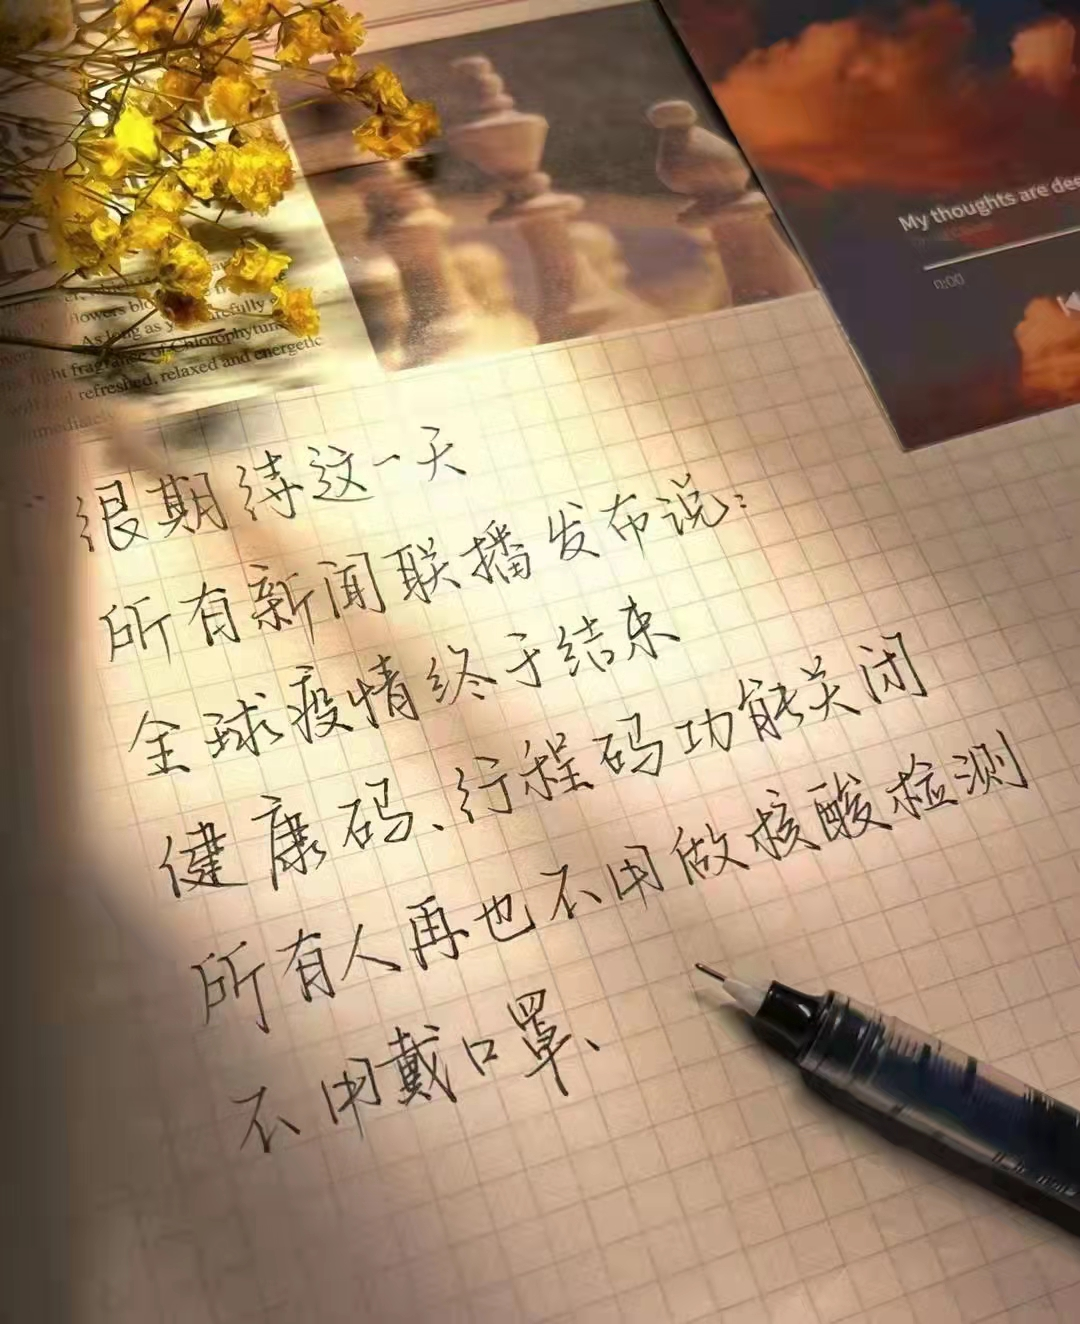 My thoughts are dee
0:00
flowers
As long as
light fragrance of Chlorophytum
refreshed, relaxed and energetic
很期待这一天
所有新闻联播发布说：
全球疫情终于结束
健康码、行程码功能关闭
所有人再也不用做核酸检测
不用戴口罩、